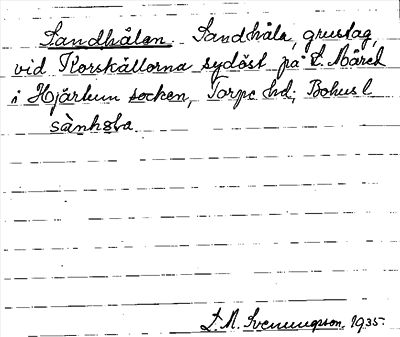 Sandhålan. Sandhåla, grustag,
vid Korskällorna sydöst på
i Hjärtum socken, Torpe hd; Bohusl
1935.